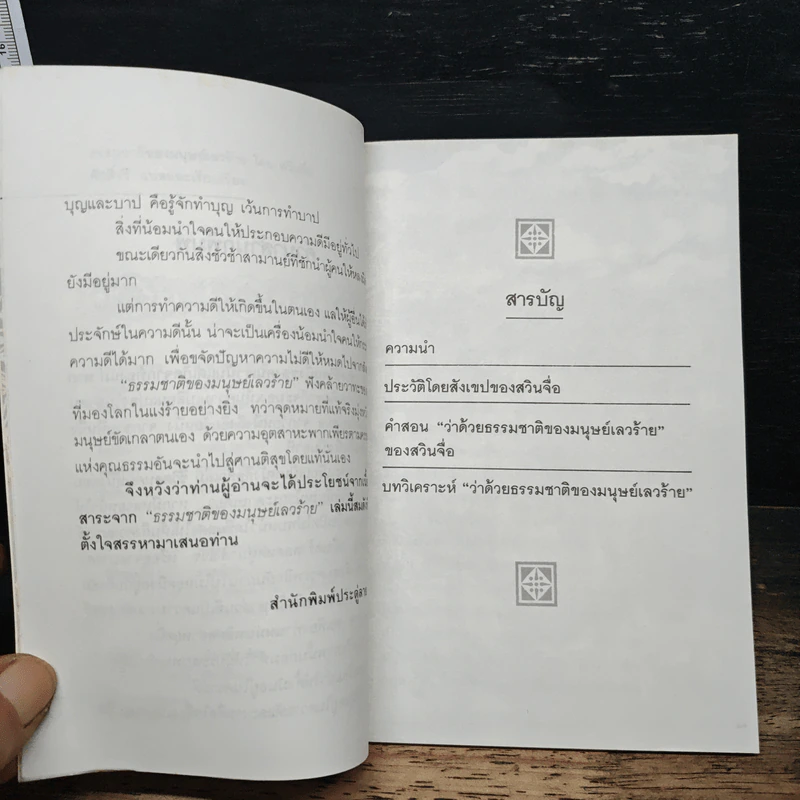 บุญและบาป คือรู้จักทำบุญ เว้นการทำบาป
สิ่งที่น้อมนำใจคนให้ประกอบความดีมีอยู่ทั่วไป
ขณะเดียวกันสิ่งชั่วช้าสามานย์ที่ชักนำผู้คนให้หลง
ยังมีอยู่มาก
แต่การทำความดีให้เกิดขึ้นในตนเอง แลให้ผู้อื่นได้
ประจักษ์ในความดีนั้น น่าจะเป็นเครื่องน้อมนำใจคนให้
ความดีได้มาก เพื่อขจัดปัญหาความไม่ดีให้หมดไปจาก
“ธรรมชาติของมนุษย์เลวร้าย” ฟังคล้ายวาทะของ
ที่มองโลกในแง่ร้ายอย่างยิ่ง ทว่าจุดหมายที่แท้จริงมุ่ง
มนุษย์ขัดเกลาตนเอง ด้วยความอุตสาหะพากเพียรตาม
แห่งคุณธรรมอันจะนำไปสู่ศานติสุขโดยแท้นั่นเอง
จึงหวังว่าท่านผู้อ่านจะได้ประโยชน์จาก
สาระจาก “ธรรมชาติของมนุษย์เลวร้าย” เล่มนี้สม
ตั้งใจสรรหามาเสนอท่าน
สำนักพิมพ์ประตู
สารบัญ
ความนำ
ประวัติโดยสังเขปของสวินจื่อ
คำสอน “ว่าด้วยธรรมชาติของมนุษย์เลวร้าย”
ของสวินจื่อ
บทวิเคราะห์ “ว่าด้วยธรรมชาติของมนุษย์เลวร้าย”